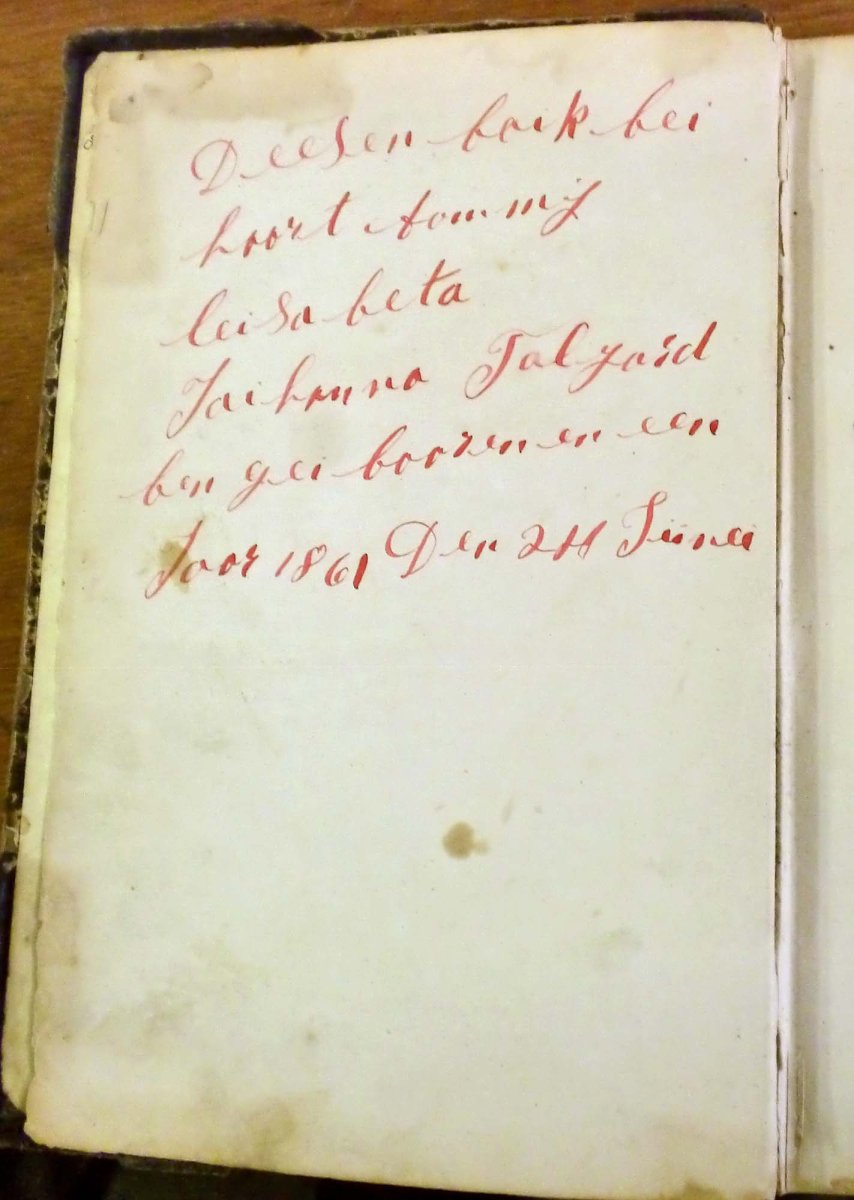 Deesen boik bei
hoort tom mij
leisabeta
Joihanna Taljaard
ben gei booren en een
Joor 1861 Den 24 Junei